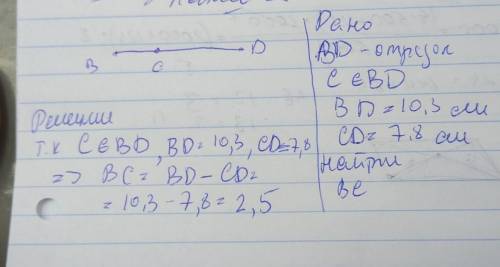 B C D
Решение
т.к C∈BD, BD=10,3, CD=7,8
=> BC= BD-CD=
= 10,3-7,8=2,5
Дано
BD-отрезок
C∈BD
BD=10,3 см
CD=7,8 см
Найти
BC